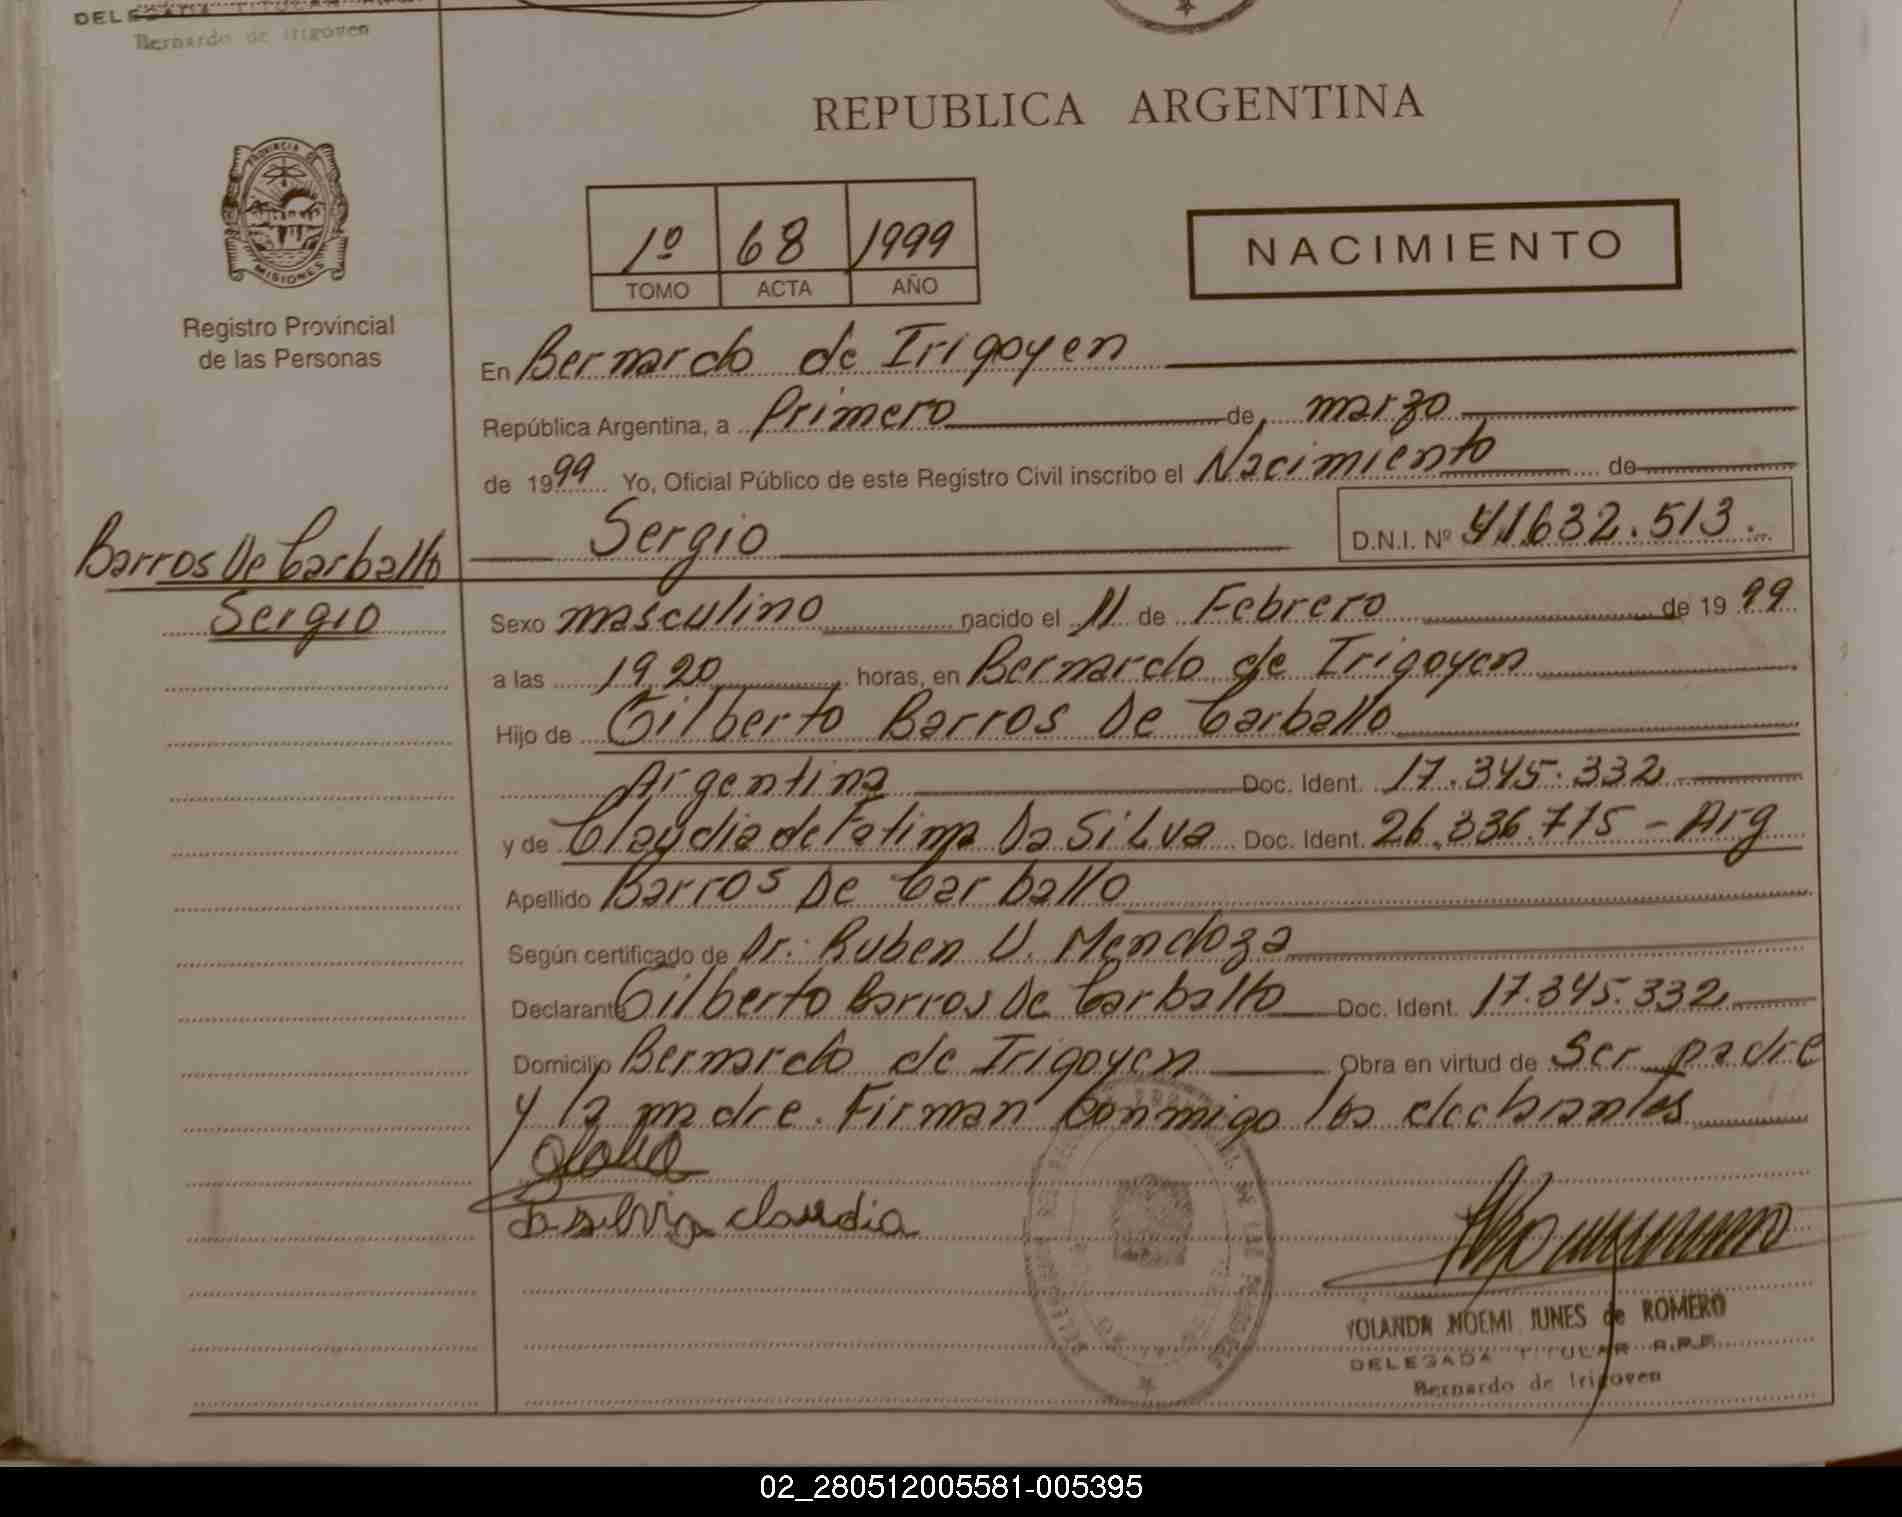 DELEGADA TITULAR
Bernardo de Irigoyen
REPUBLICA ARGENTINA
PROVINCIA DE
MISIONES
Registro Provincial
de las Personas
1º 68 1999
TOMO ACTA AÑO
NACIMIENTO
En Bernardo de Irigoyen
República Argentina, a Primero de marzo
de 1999 Yo, Oficial Público de este Registro Civil inscribo el Nacimiento de
Sergio D.N.I. Nº 41632.513.
Barros De Carballo
Sergio
Sexo masculino nacido el 11 de Febrero de 1999
a las 19 20 horas, en Bernardo de Irigoyen
Hijo de Gilberto Barros De Carballo
Argentina Doc. Ident. 17.345.332
y de Claudia de Fatima Da Silva Doc. Ident. 26.336.715 - Arg
Apellido Barros De Carballo
Según certificado de Dr. Ruben V. Mendoza
Declarante Gilberto Barros De Carballo Doc. Ident. 17.345.332
Domicilio Bernardo de Irigoyen Obra en virtud de Ser padre
y la madre. Firman conmigo los declarantes
da silvia claudia
YOLANDA NOEMI JUNES de ROMERO
DELEGADA TITULAR R.P.P.
Bernardo de Irigoyen
02_280512005581-005395